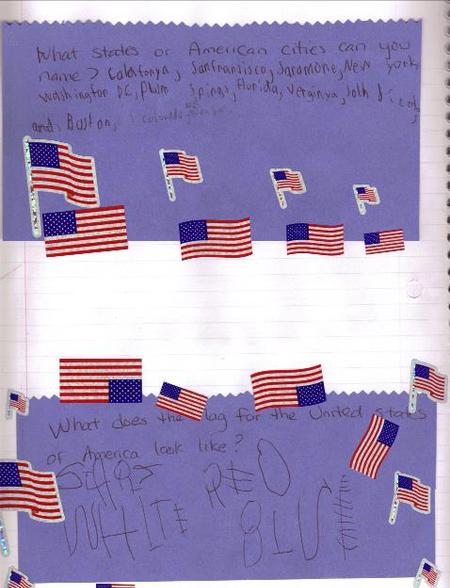 What states or American cities can you
name? Calafonya, Sanfransisco, Saramone, New York,
Washington DC, Plam Spings, Florida, Verginya,
and Boston,
What does the lag for the United States
of America look like?
STARS RED
WHITE BLUE